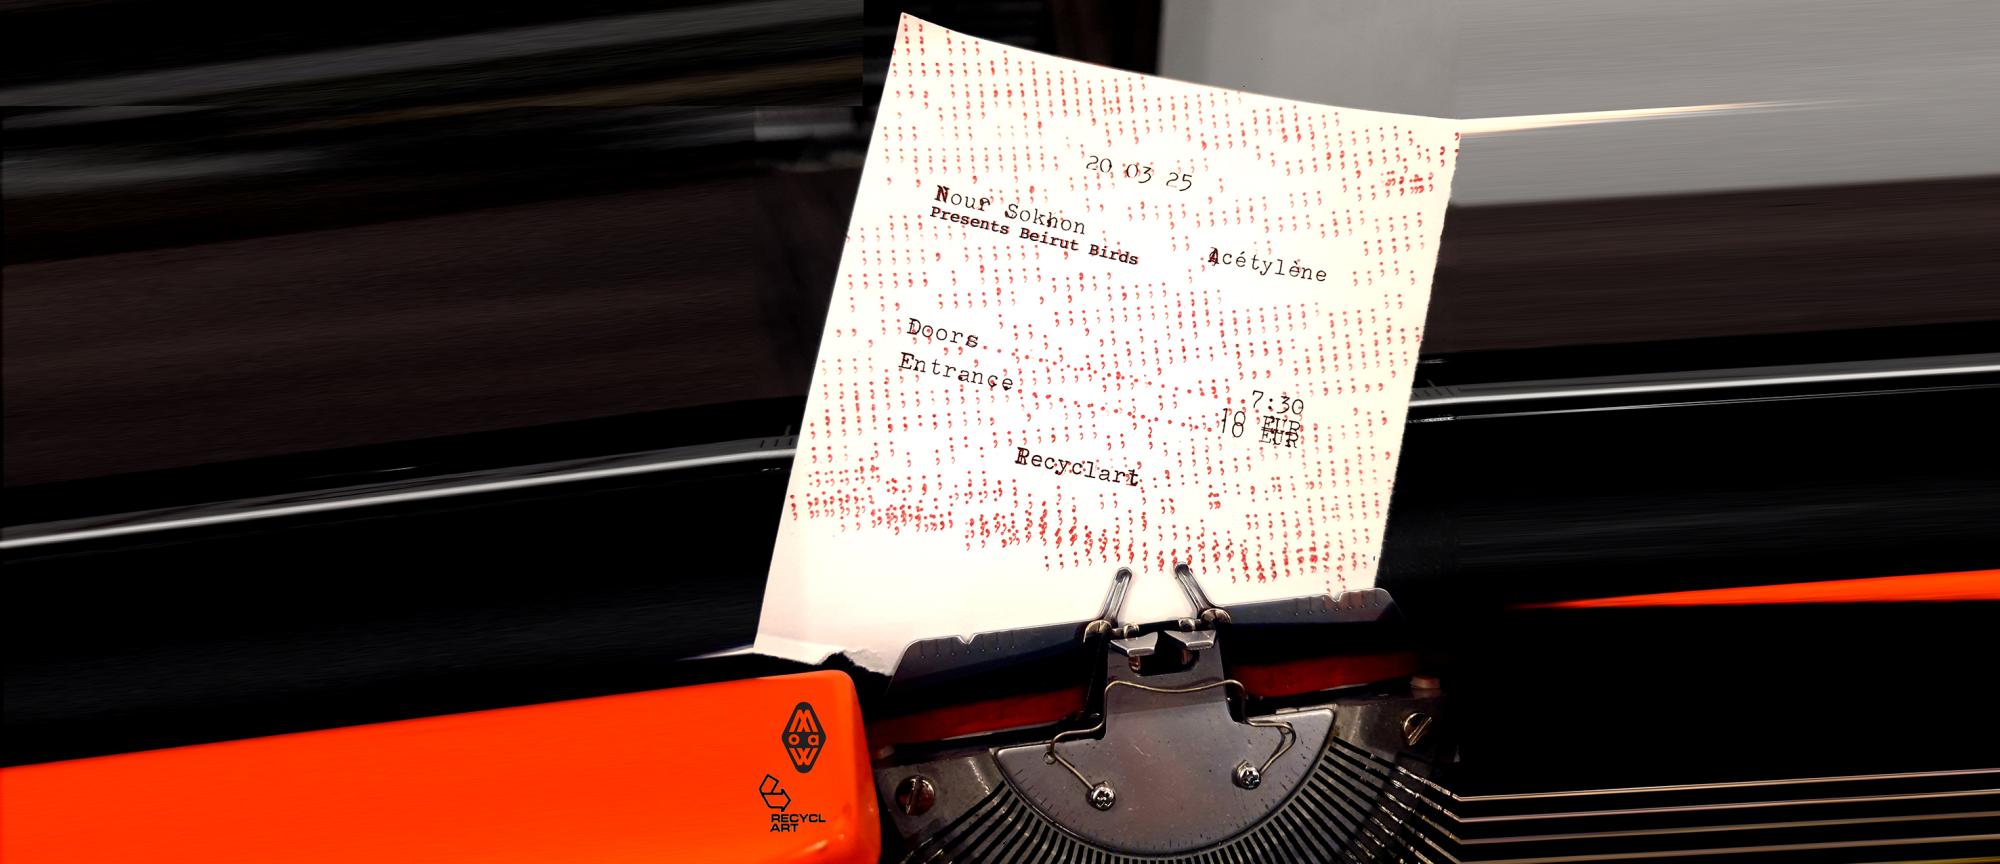 20 03 25
Nour Sokhon
Presents Beirut Birds
Acétylène
Doors
7:30
Entrance
10 EUR
10 EUR
Recyclart
MoaW
RECYCL
ART